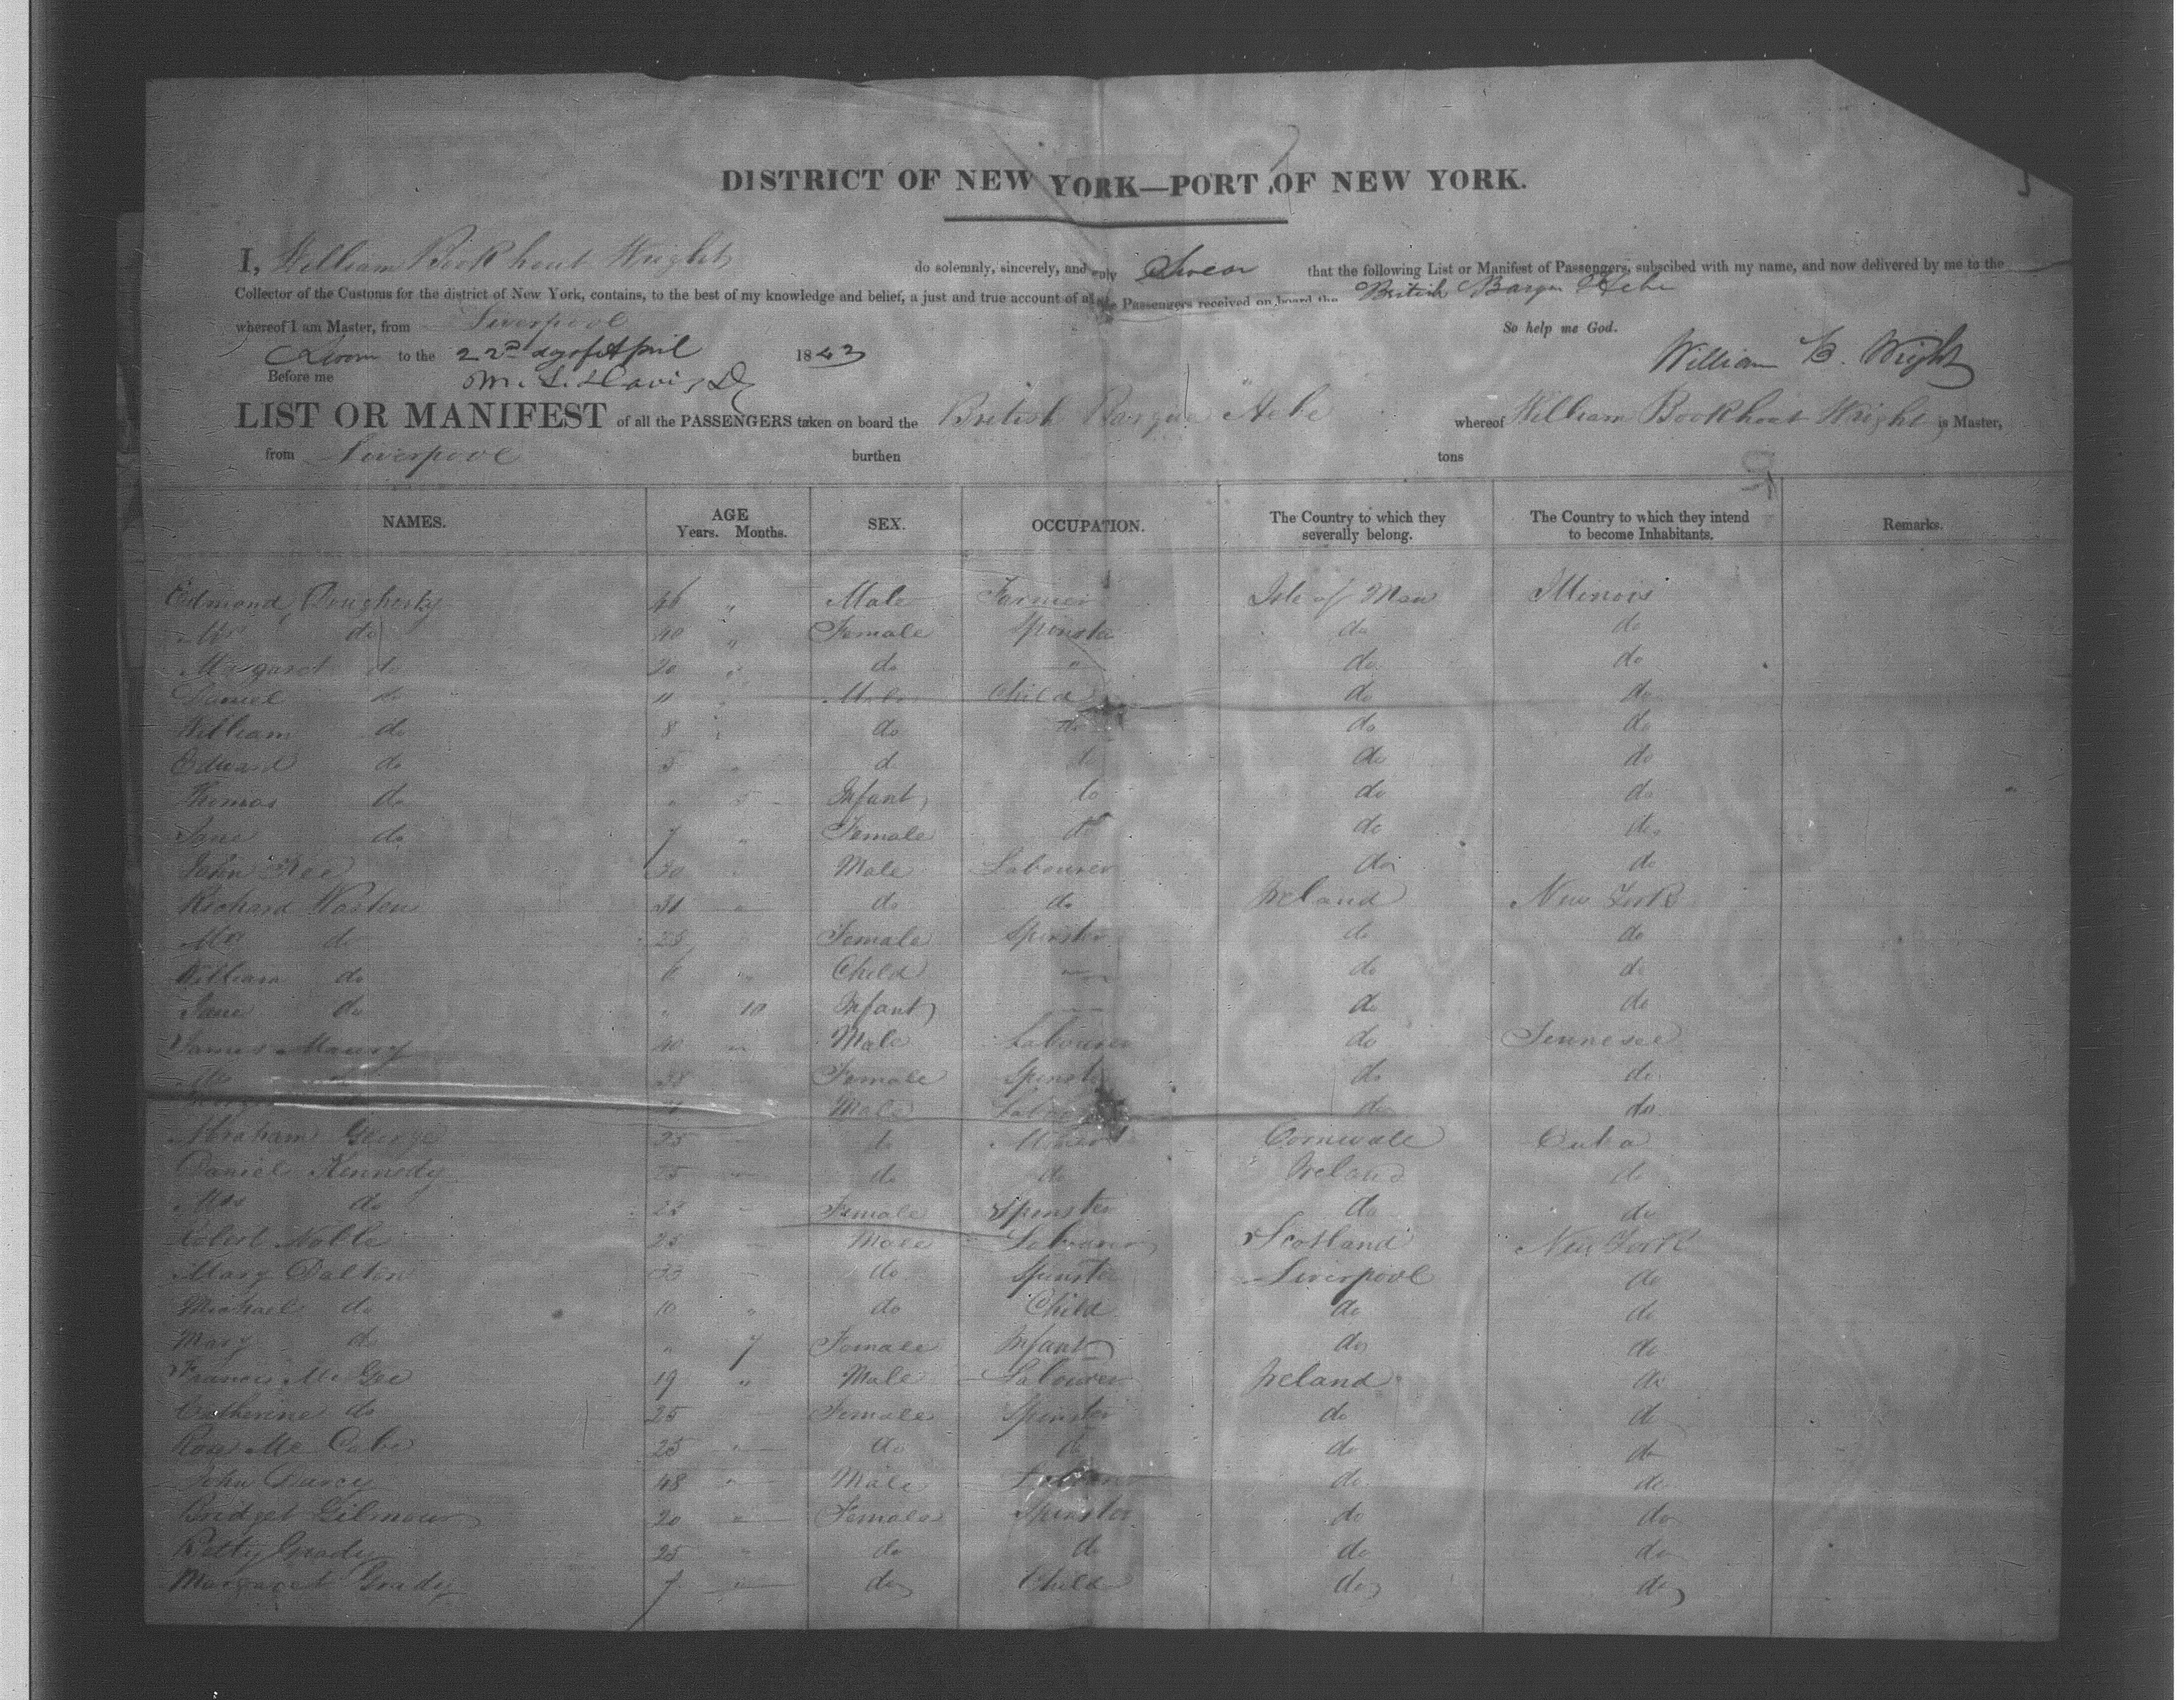 DISTRICT OF NEW YORK—PORT OF NEW YORK.
I, William Bookhout Wright do solemnly, sincerely, and truly Swear that the following List or Manifest of Passengers, subscibed with my name, and now delivered by me to the
Collector of the Customs for the district of New York, contains, to the best of my knowledge and belief, a just and true account of all the Passengers received on board the British Barque Hebe
whereof I am Master, from Liverpool
So help me God.
Sworn to the 22nd day of April 1843 William B. Wright
Before me
LIST OR MANIFEST of all the PASSENGERS taken on board the British Barque Hebe whereof William Bookhout Wright is Master,
from Liverpool burthen tons
NAMES. AGE Years. Months. SEX. OCCUPATION. The Country to which they severally belong. The Country to which they intend to become Inhabitants. Remarks.
Edmond Dougherty 46 " Male Farmer Isle of Man Illinois
Mrs do 40 " Female Spinster do do
Margaret do 20 " do " do do
Daniel do 11 " Male Child do do
William do 8 " do do do do
Edward do 5 " d do do do
Thomas do " 5 Infant do do do
Jane do 7 " Female do do do
John Kee 30 Male Labourer do do
Richard 31 " do do Ireland New York
Mrs do 28 " Female Spinster do do
William do 6 " Child — do do
Jane do " 10 Infant — do do
James 40 " Male Labourer do Tennesee
do 38 Female Spinster do do
Male Labourer do do
Abraham George 25 do Miner Cornwall Cuba
Daniel Kennedy 25 " do do Ireland do
Mrs do 23 Female Spinster do do
Robert Noble 25 Male Labourer Scotland New York
Mary Dalton 33 do Spinster Liverpool do
Michael do 10 " do Child do do
Mary do " 7 Female Infant do do
Francis Mc Gee 19 " Male Labourer Ireland do
Catherine do 25 Female Spinster do do
Rose Mc Cabe 25 " do do do do
John Darcy 48 " Male Labourer do do
Bridget Gilmour 20 " Female Spinster do do
Betty Grady 25 " do do do do
Margaret Grady 7 " do Child do do